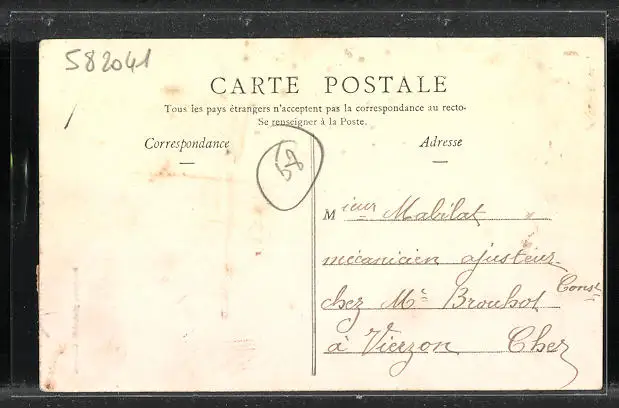 582041
CARTE POSTALE
Tous les pays étrangers n'acceptent pas la correspondance au recto-
Se renseigner à la Poste.
Correspondance
Adresse
58
Mieur Mabilat
mécanicien ajusteur
chez Mr Brouhot Const
à Vierzon Cher